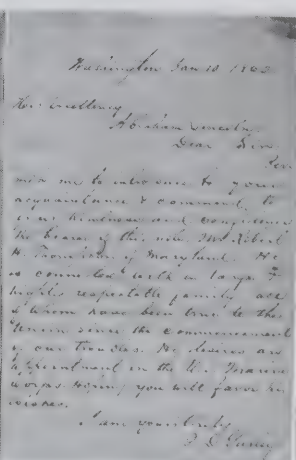 Washington Jan 13 1863
His Excellency
Abraham Lincoln
Dear Sir
Per
mit me to introduce to your
acquaintance & commend to
your kindness and confidence
the bearer of this note Mr Robert
H. of Maryland. He
is connected with a large &
highly respectable family all
of whom have been true to the
Union since the commencement
of our troubles. He desires an
appointment in the U.S. Marine
Corps hoping you will favor his
wishes.
I am yours truly